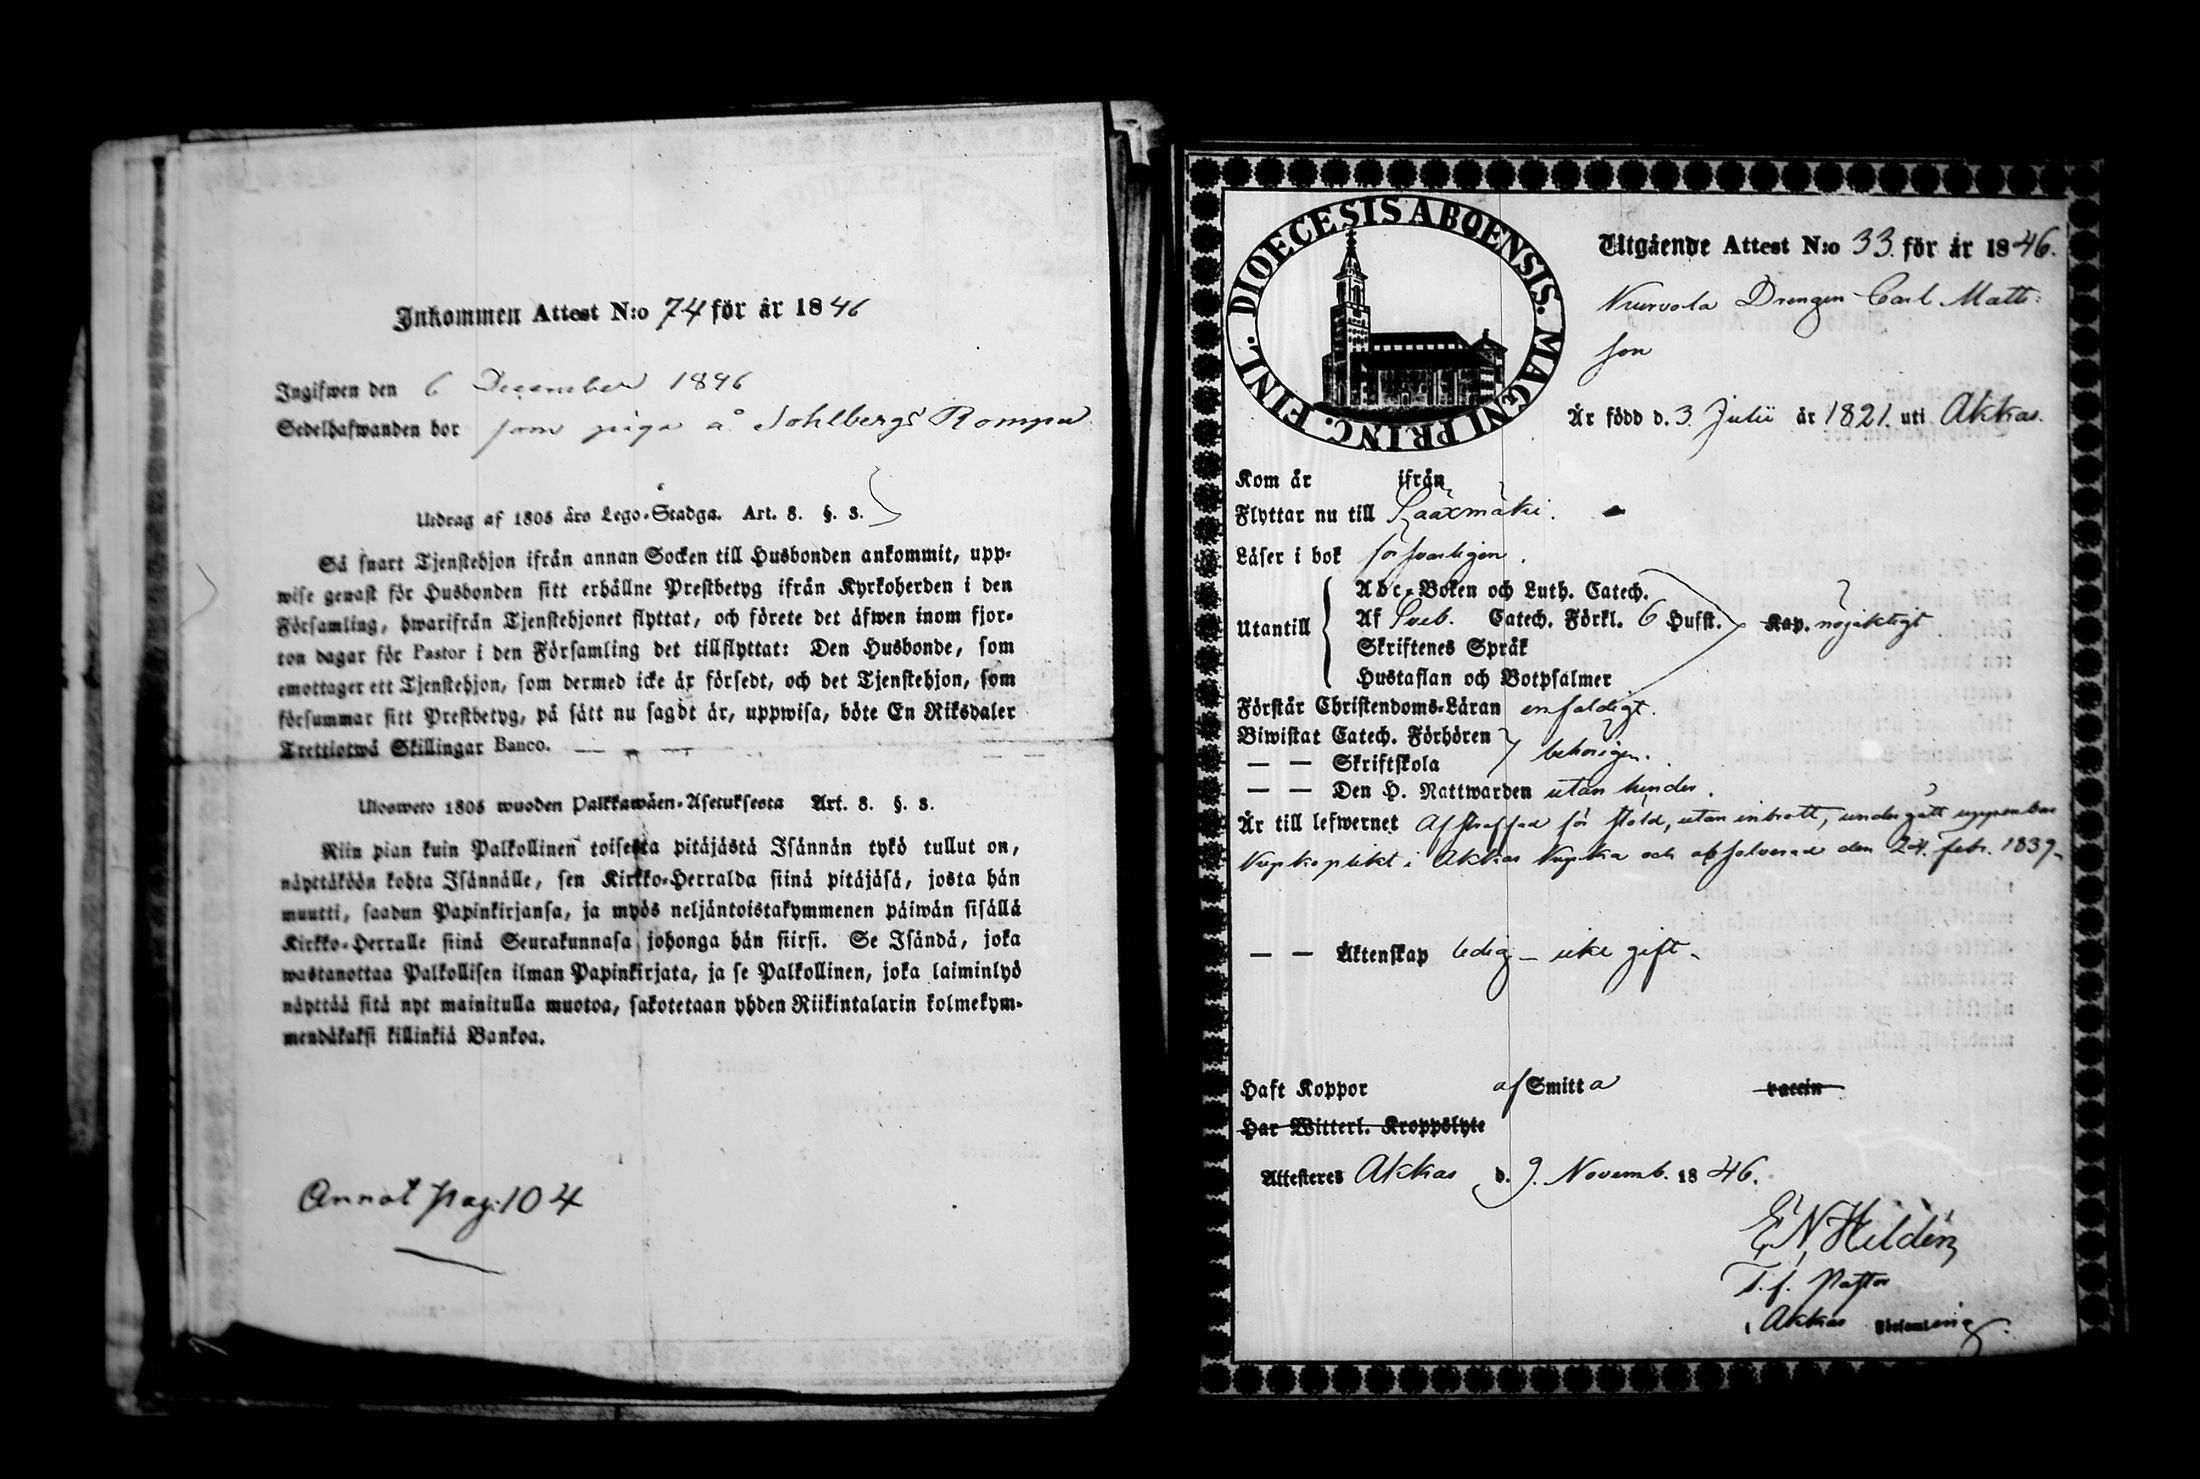 Inkommen Attest N:o 74 för år 1846
Ingifwen den 6 December 1846
Sedelhafwanden bor som piga å Sohlbergs Rompu
Utdrag af 1805 års Lego-Stadga. Art. 8. §. 3.
Så snart Tjenstehjon ifrån annan Socken till Husbonden ankommit, upp-
wise genast för Husbonden sitt erhållne Prestbetyg ifrån Kyrkoherden i den
Församling, hwarifrån Tjenstehjonet flyttat, och förete det äfwen inom fjor-
ton dagar för Pastor i den Församling det tillflyttat: Den Husbonde, som
emottager ett Tjenstehjon, som dermed icke är försedt, och det Tjenstehjon, som
försummar sitt Prestbetyg, på sätt nu sagdt är, uppwisa, böte En Riksdaler
Trettiotwå Skillingar Banco.
Ulosweto 1805 wuoden Palkkawäen-Asetuksesta Art. 8. §. 3.
Niin pian kuin Palkollinen toisesta pitäjästä Isännän tykö tullut on,
näyttäköön kohta Isännälle, sen Kirkko-Herralda siinä pitäjäsä, josta hän
muutti, saadun Papinkirjansa, ja myös neljäntoistakymmenen päiwän sisällä
Kirkko-Herralle siinä Seurakunnasa johonga hän siirsi. Se Isändä, joka
wastanottaa Palkollisen ilman Papinkirjata, ja se Palkollinen, joka laiminlyö
näyttää sitä nyt mainitulla muotoa, sakotetaan yhden Riikintalarin kolmekym-
mendäkaksi killinkiä Bankoa.
Annot pag: 104
DIOECESIS ABOENSIS. MAGNI PRINC. FINL.
Utgående Attest N:o 33. för år 1846.
Drengen Carl Matts:
son
Är född d. 3 Julii år 1821. uti Akkas.
Kom år ifrån
Flyttar nu till Sääxmäki.
Läser i bok försvarligen.
Utantill
Abc-Boken och Luth. Catech.
Af Sveb. Catech. Förkl. 6 Hufst. Kap. nöjaktigt
Skriftenes Språk
Hustaflan och Botpsalmer
Förstår Christendoms-Läran enfaldigt.
Biwistat Catech. Förhören
— — Skriftskola behörigen.
— — Den H. Nattwarden utan hinder.
Är till lefwernet afstraffad för stöld, utan inbrott, undergått uppenbar
kyrkoplikt i Akkas Kyrka och absolverad den 24. febr. 1839.
— — Äktenskap ledig – icke gift.
Haft Koppor af Smitta vaccin
Har Witterl. Kroppslyte
Attesteres Akkas d. 9. Novemb. 1846.
E, N, Hildén
T. f. Pastor
i Akkas Församling.